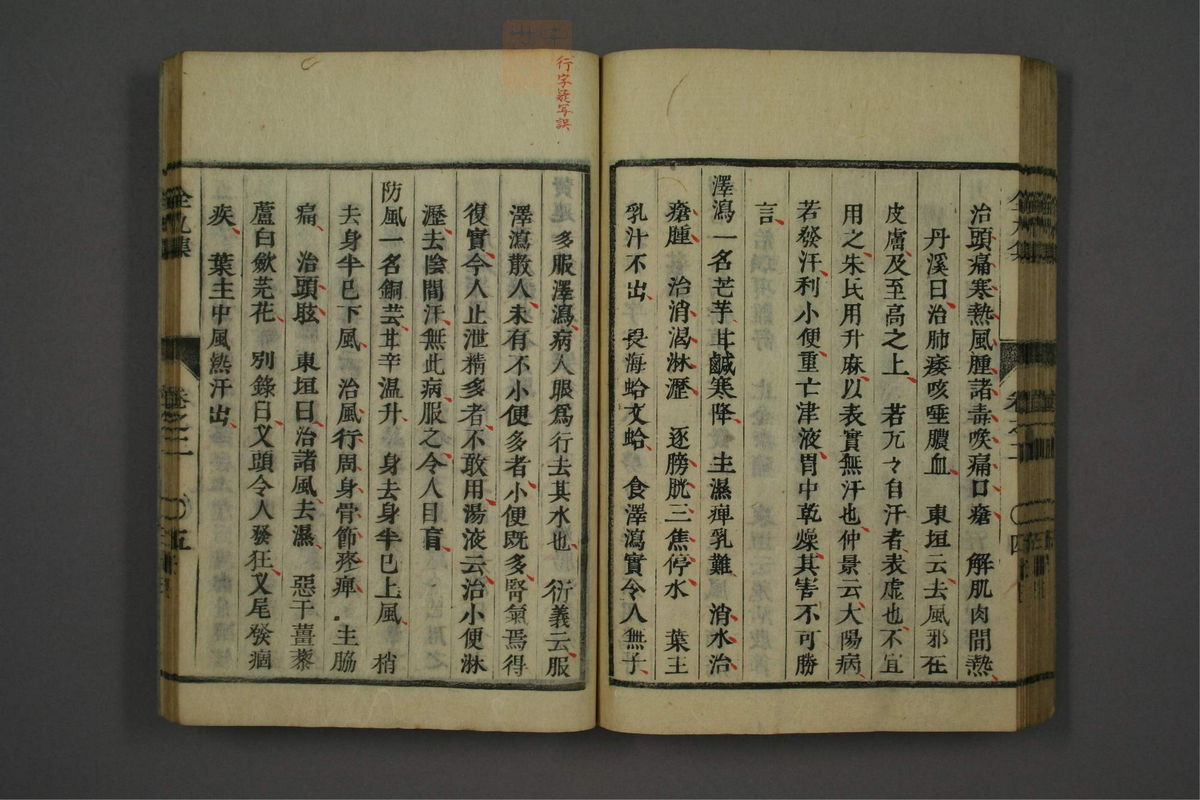 治頭痛寒熱風腫諸毒喉痛口瘡　解肌肉間熱
丹溪曰治肺痿咳唾膿血　東垣云去風邪在
皮膚及至高之上　若兀々自汗者表虛也不宜
用之朱氏用升麻以表實無汗也仲景云大陽病
若發汗利小便重亡津液胃中乾燥其害不可勝
言
澤瀉一名芒芋甘鹹寒降　主濕痺乳難　消水治
瘡腫　治消渴淋瀝　逐膀胱三焦停水　葉主
乳汁不出　畏海蛤文蛤　食澤瀉實令人無子
多服澤瀉病人眼爲行去其水也　衍義云服
澤瀉散人未有不小便多者小便既多腎氣焉得
復實今人止泄精多者不敢用湯液云治小便淋
瀝去陰間汗無此病服之令人目盲
防風一名銅芸甘辛溫升　身去身半已上風　梢
去身半已下風　治風行周身骨節疼痺　主脇
痛　治頭眩　東垣曰治諸風去濕　惡干薑藜
蘆白斂芫花　別錄曰叉頭令人發狂叉尾發痼
疾　葉主中風熱汗出
行字疑写誤
全九集
卷之二
〇五
卷之二
〇四